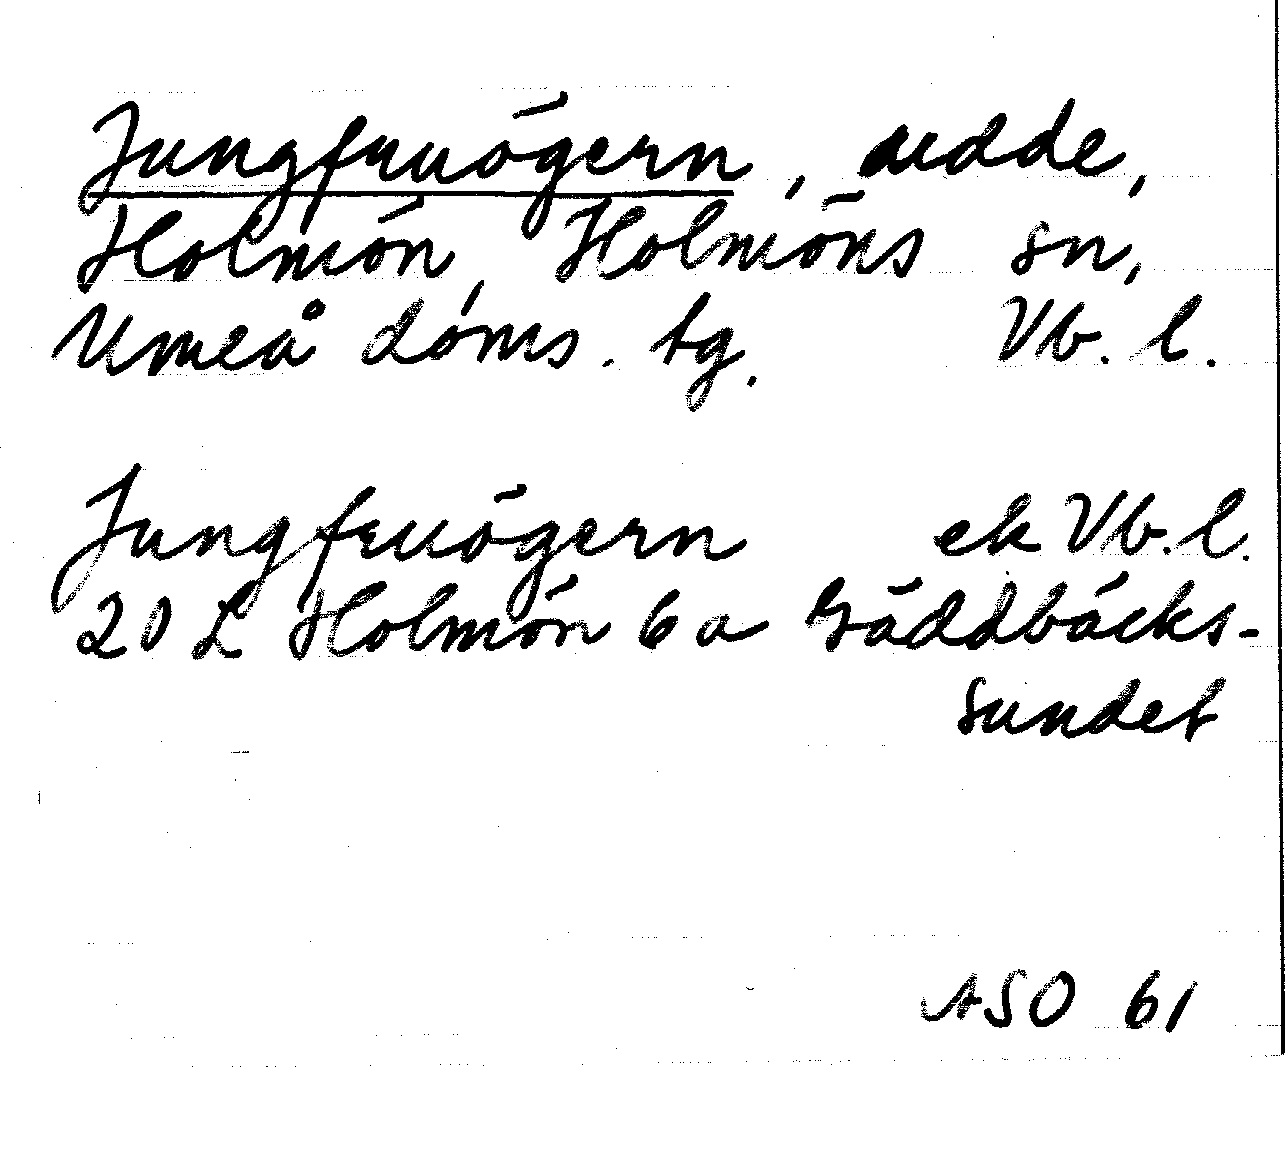 Jungfruögern, udde,
Holmön, Holmöns sn,
Umeå doms. tg. Vb. l.
Jungfruögern ek Vb. l.
20 L Holmön 6 a Gäddbäcks-
sundet
ASO 61